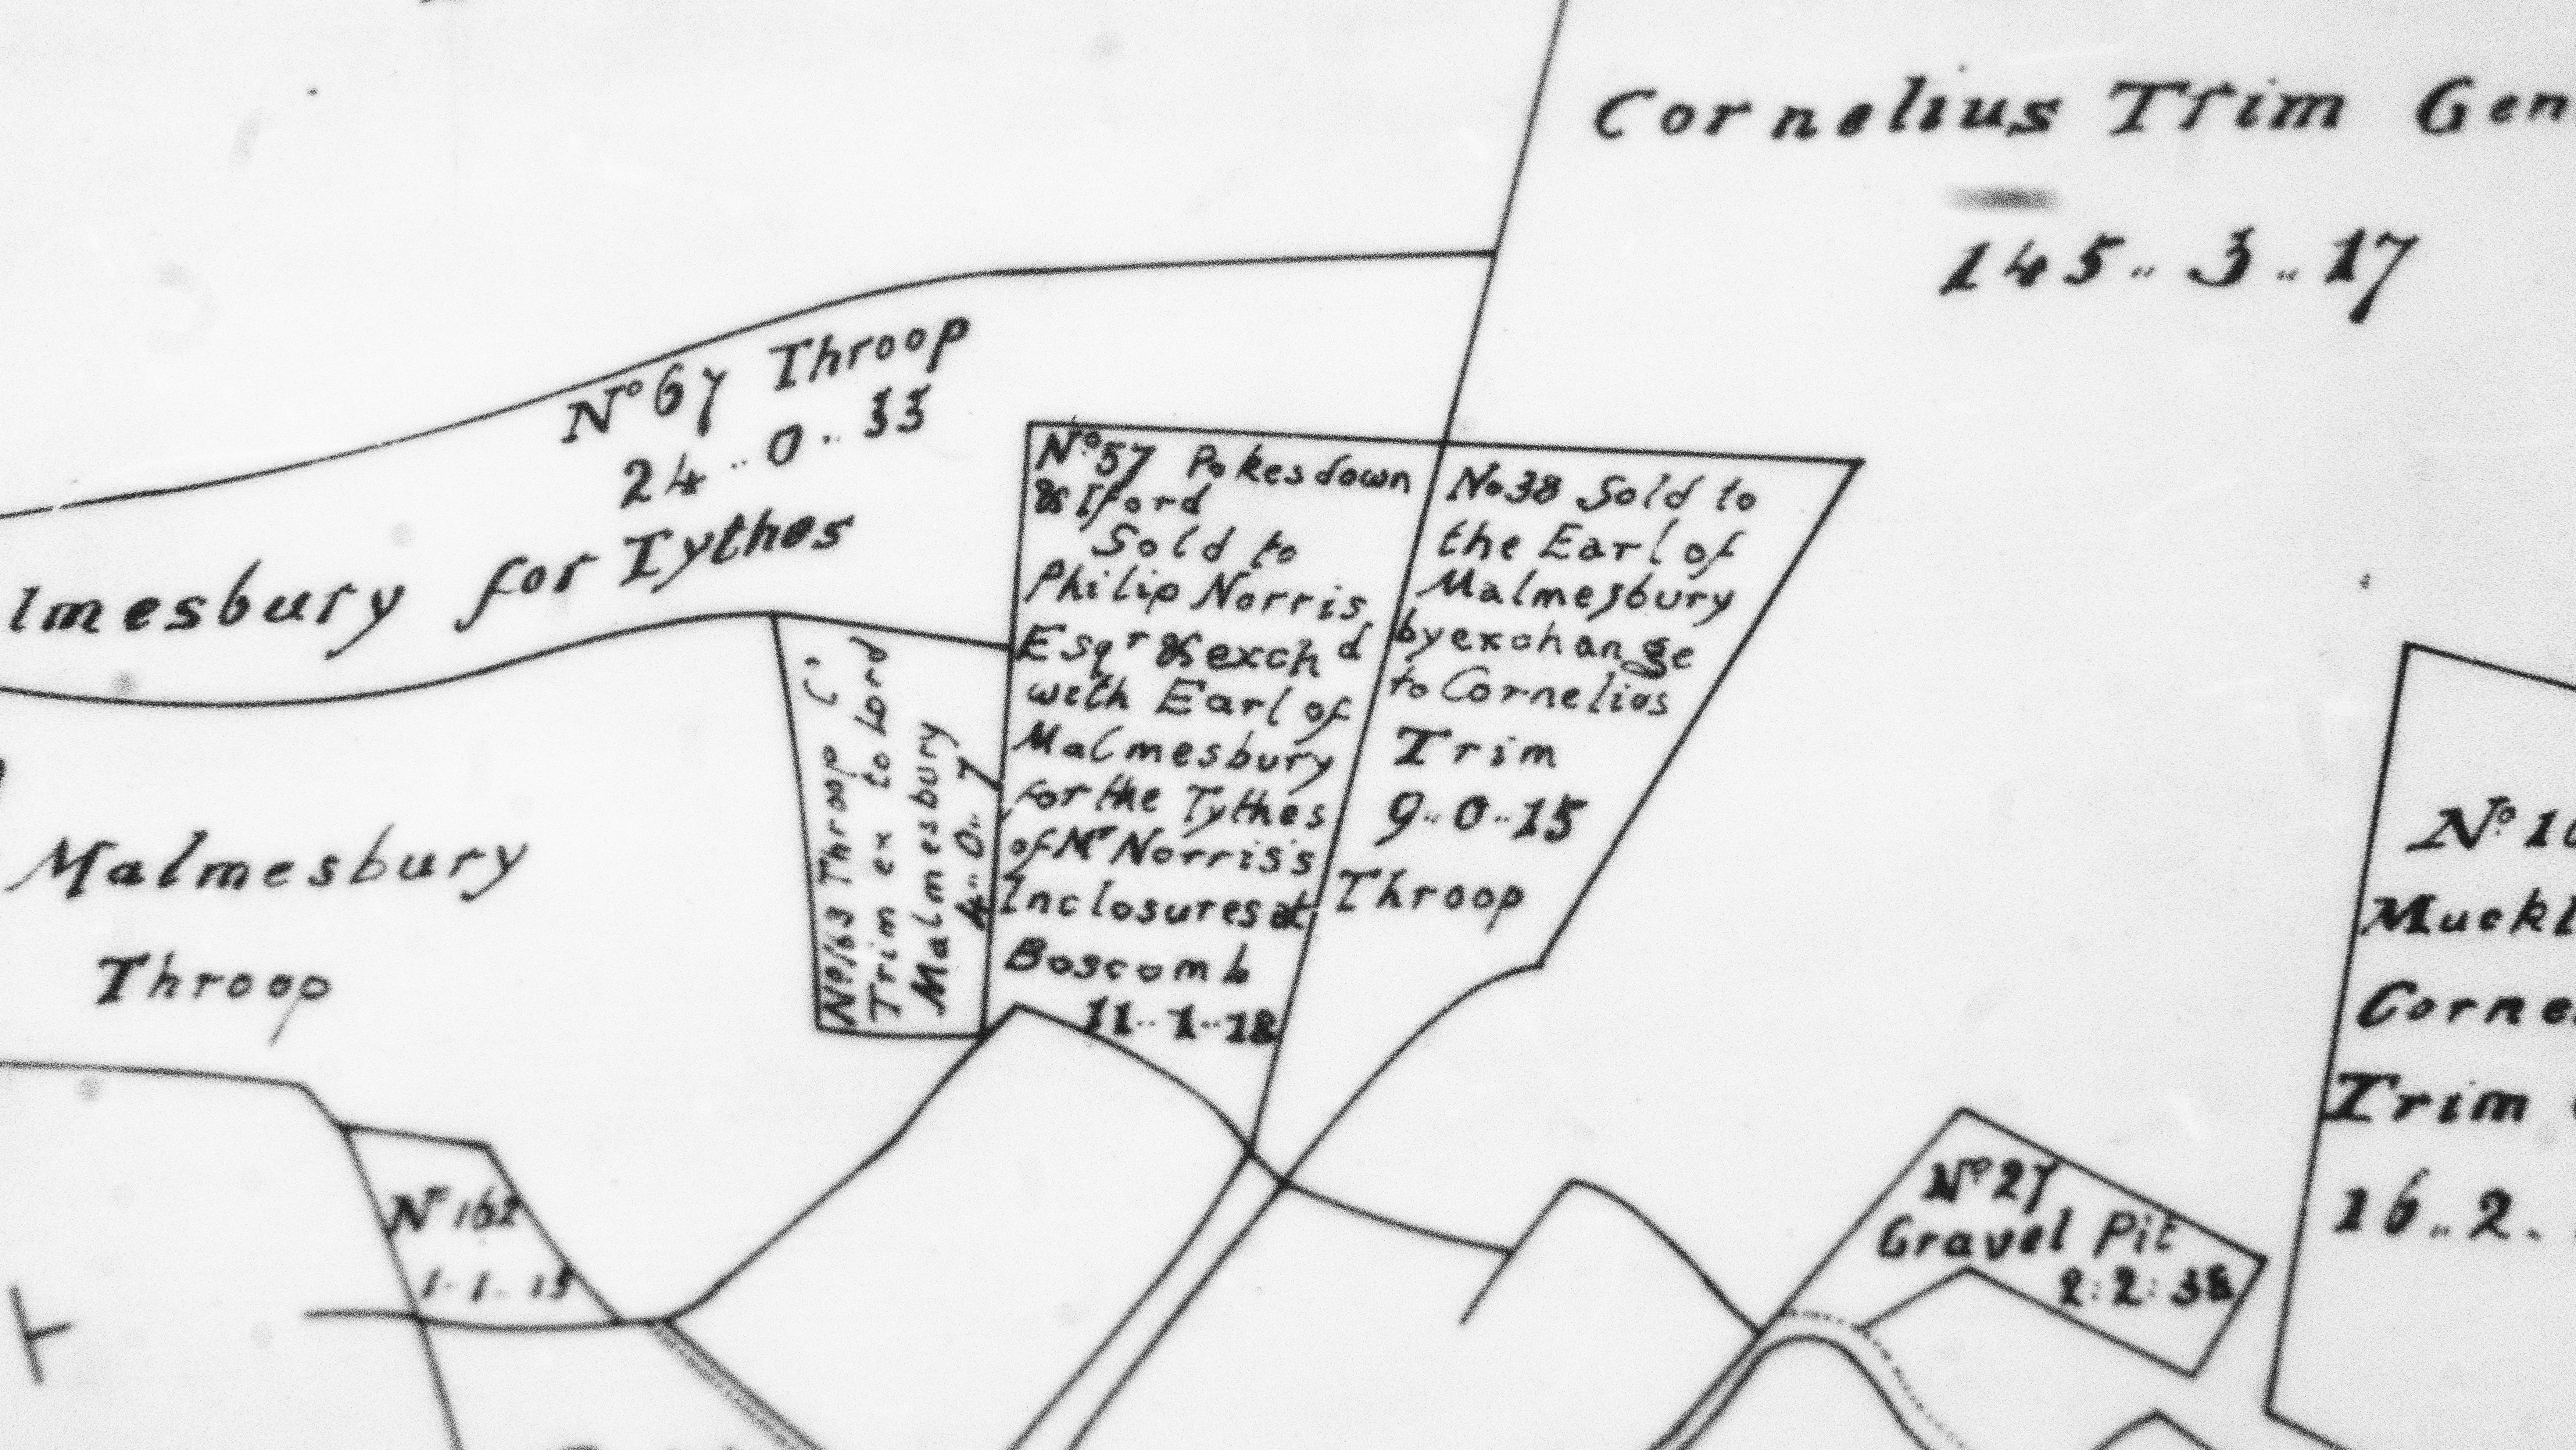 Cornelius Trim Gen
145..3..17
No 67 Throop
24..0..33
lmesbury for Tythes
No 57 Pokesdown
& Iford
Sold to
Philip Norris
Esqr & exchd
with Earl of
Malmesbury
for the Tythes
of Mr Norris's
Inclosures at
Boscomb
11..1..18
No 38 Sold to
the Earl of
Malmesbury
by exchange
to Cornelius
Trim
9..0..15
Throop
No 163 Throop C
Trim ex to Lord
Malmesbury
4..0..7
Malmesbury
Throop
No 162
1..1..15
No 27
Gravel Pit
2:2:38
No 16
Muckl
Corne
Trim
16..2.